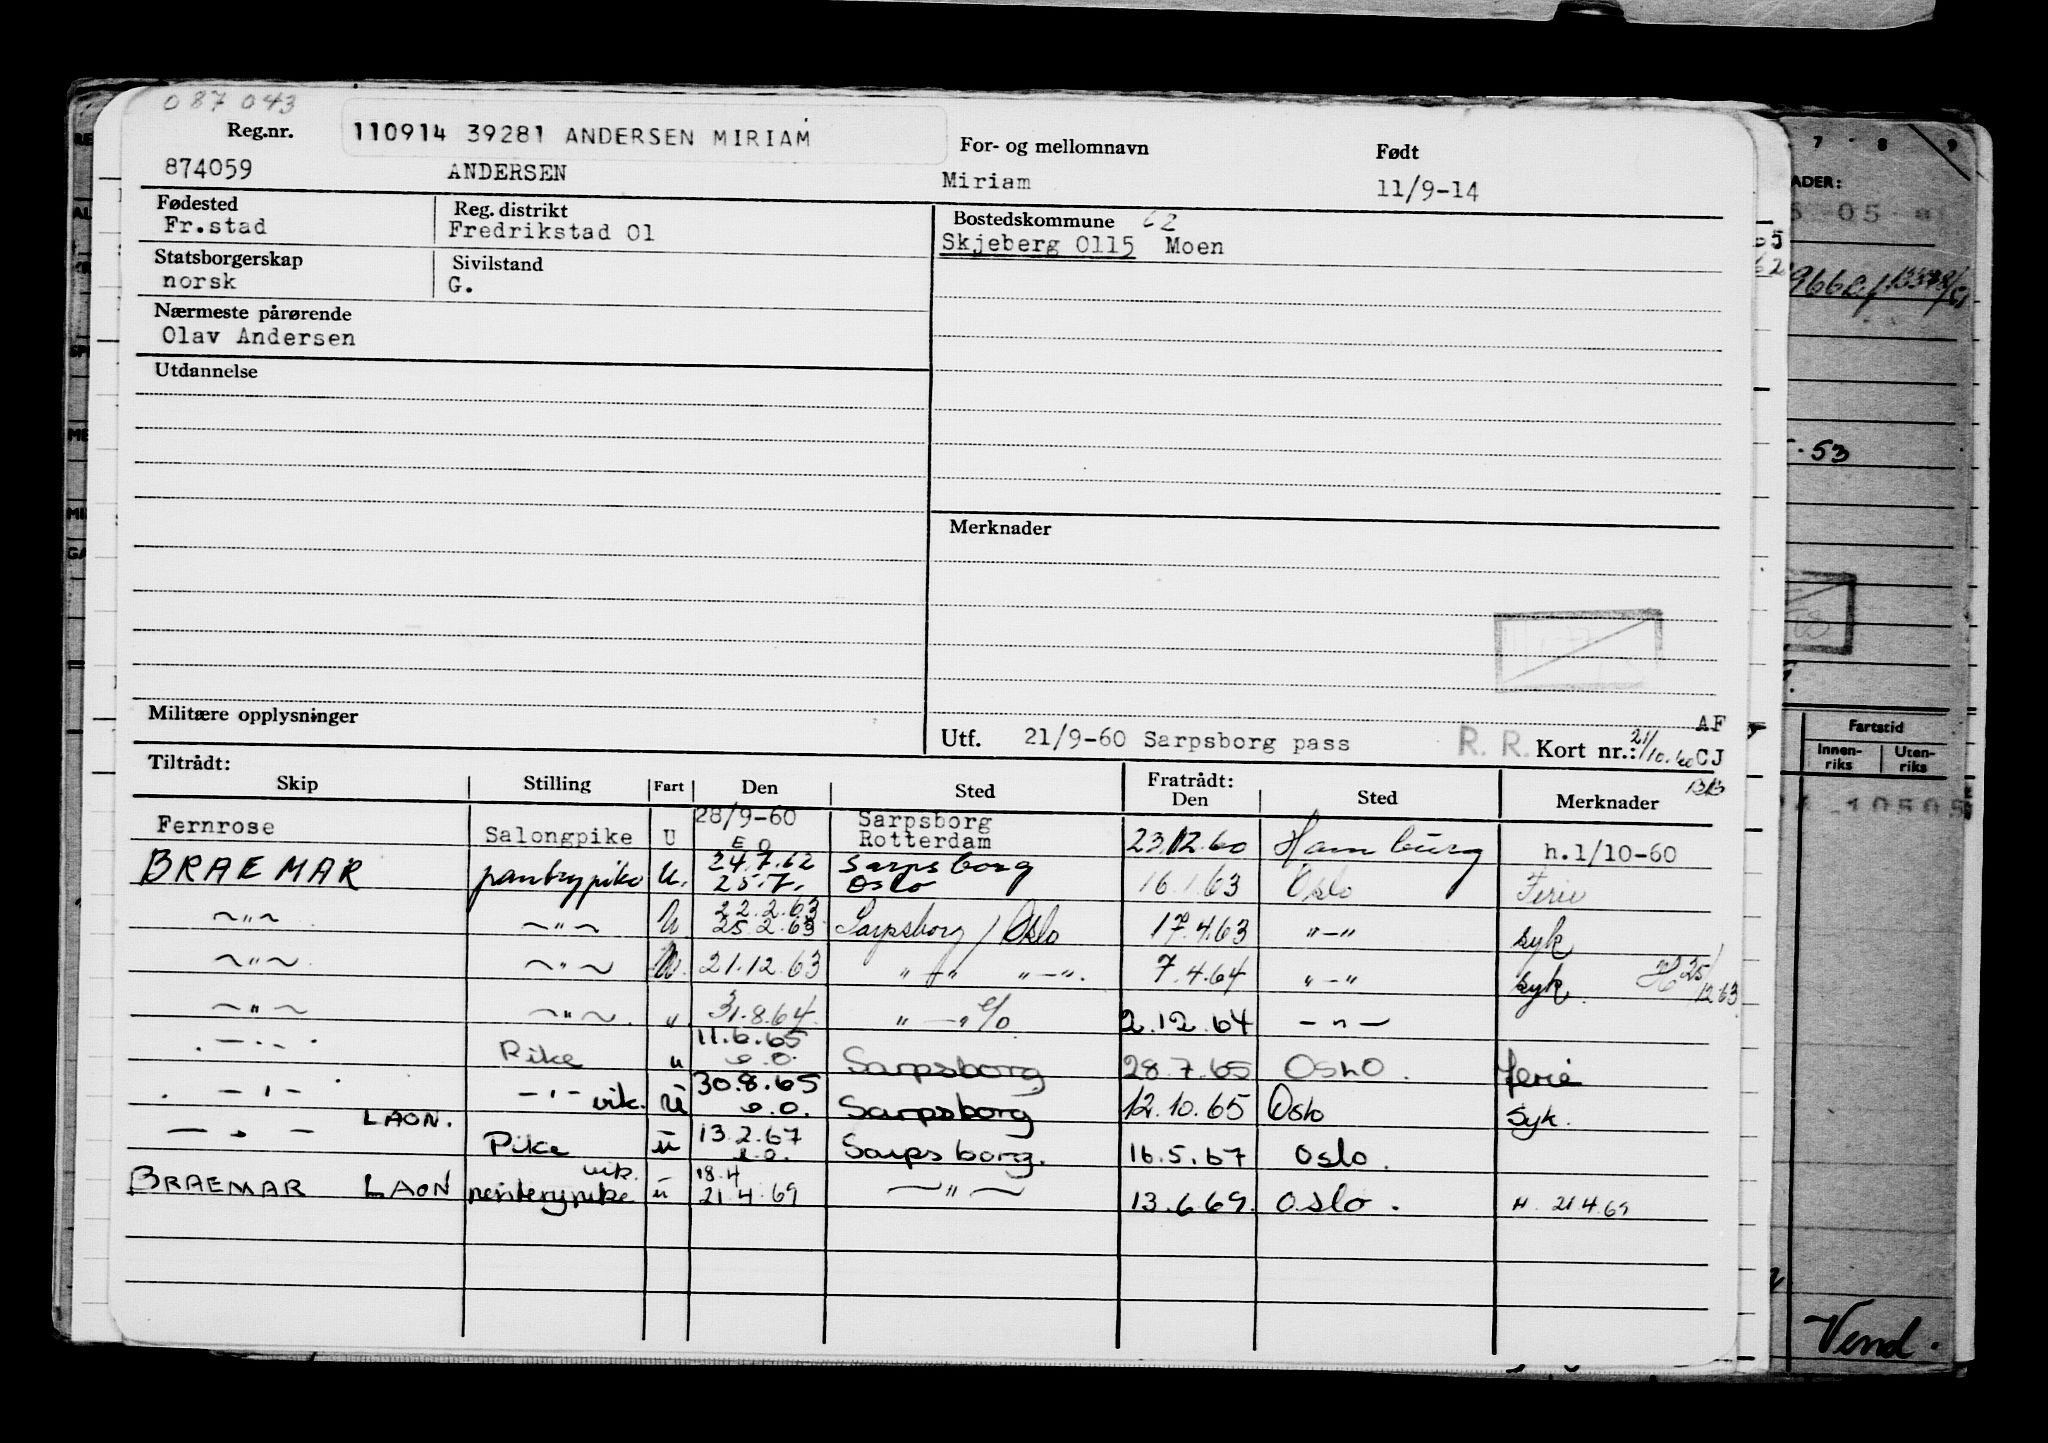 087043
110914 39281 ANDERSEN MIRIAM
Reg.nr. For- og mellomnavn Født
874059 ANDERSEN Miriam 11/9-14
Fødested Reg. distrikt Bostedskommune 62
Fr.stad Fredrikstad 01 Skjeberg 0115 Moen
Statsborgerskap Sivilstand
norsk G.
Nærmeste pårørende
Olav Andersen
Utdannelse
Merknader
Militære opplysninger
AF
Utf. 21/9-60 Sarpsborg pass R. R. Kort nr.: 21/10.60 CJ
Tiltrådt: Fratrådt:
Skip Stilling Fart Den Sted Den Sted Merknader
28/9-60 Sarpsborg
Fernrose Salongpike U E O Rotterdam 23.12.60 Hamburg h.1/10-60
24.7.62 Sarpsborg
BRAEMAR pantrypike U. 25.7. Oslo 16.1.63 Oslo Ferie
22.2.63
~"~ ~"~ U 25 2.63 Sarpsborg / Oslo 17.4.63 "-" syk
~"~ ~"~ U. 21.12.63 "-" "-". 7.4.64 "-" syk. H 25/12 63
~"~ ~"~. ". 31.8.64 "-" e/o 2.12.64 -"-
11.6.65
-"- Pike " e.o. Sarpsborg 28.7.65 OSLO. ferie
30.8.65
-"- -"- vik. U e.o. Sarpsborg 12.10.65 Oslo Syk.
LAON. 13.2.67
-"- Pike u e.o. Sarpsborg. 16.5.67 Oslo.
vik. 18.4
BRAEMAR LAON u 21.4.69 ~"~ 13.6.69. Oslo. H. 21.4.69
7 8 9
ADER:
05
53
Fartstid
Innen-riks Uten-riks
10505
Vend.